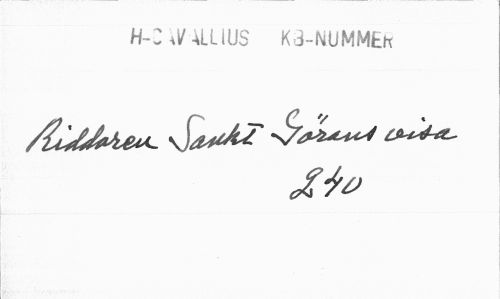 H-CAVALLIUS KB-NUMMER
Riddaren Sankt Görans visa
240